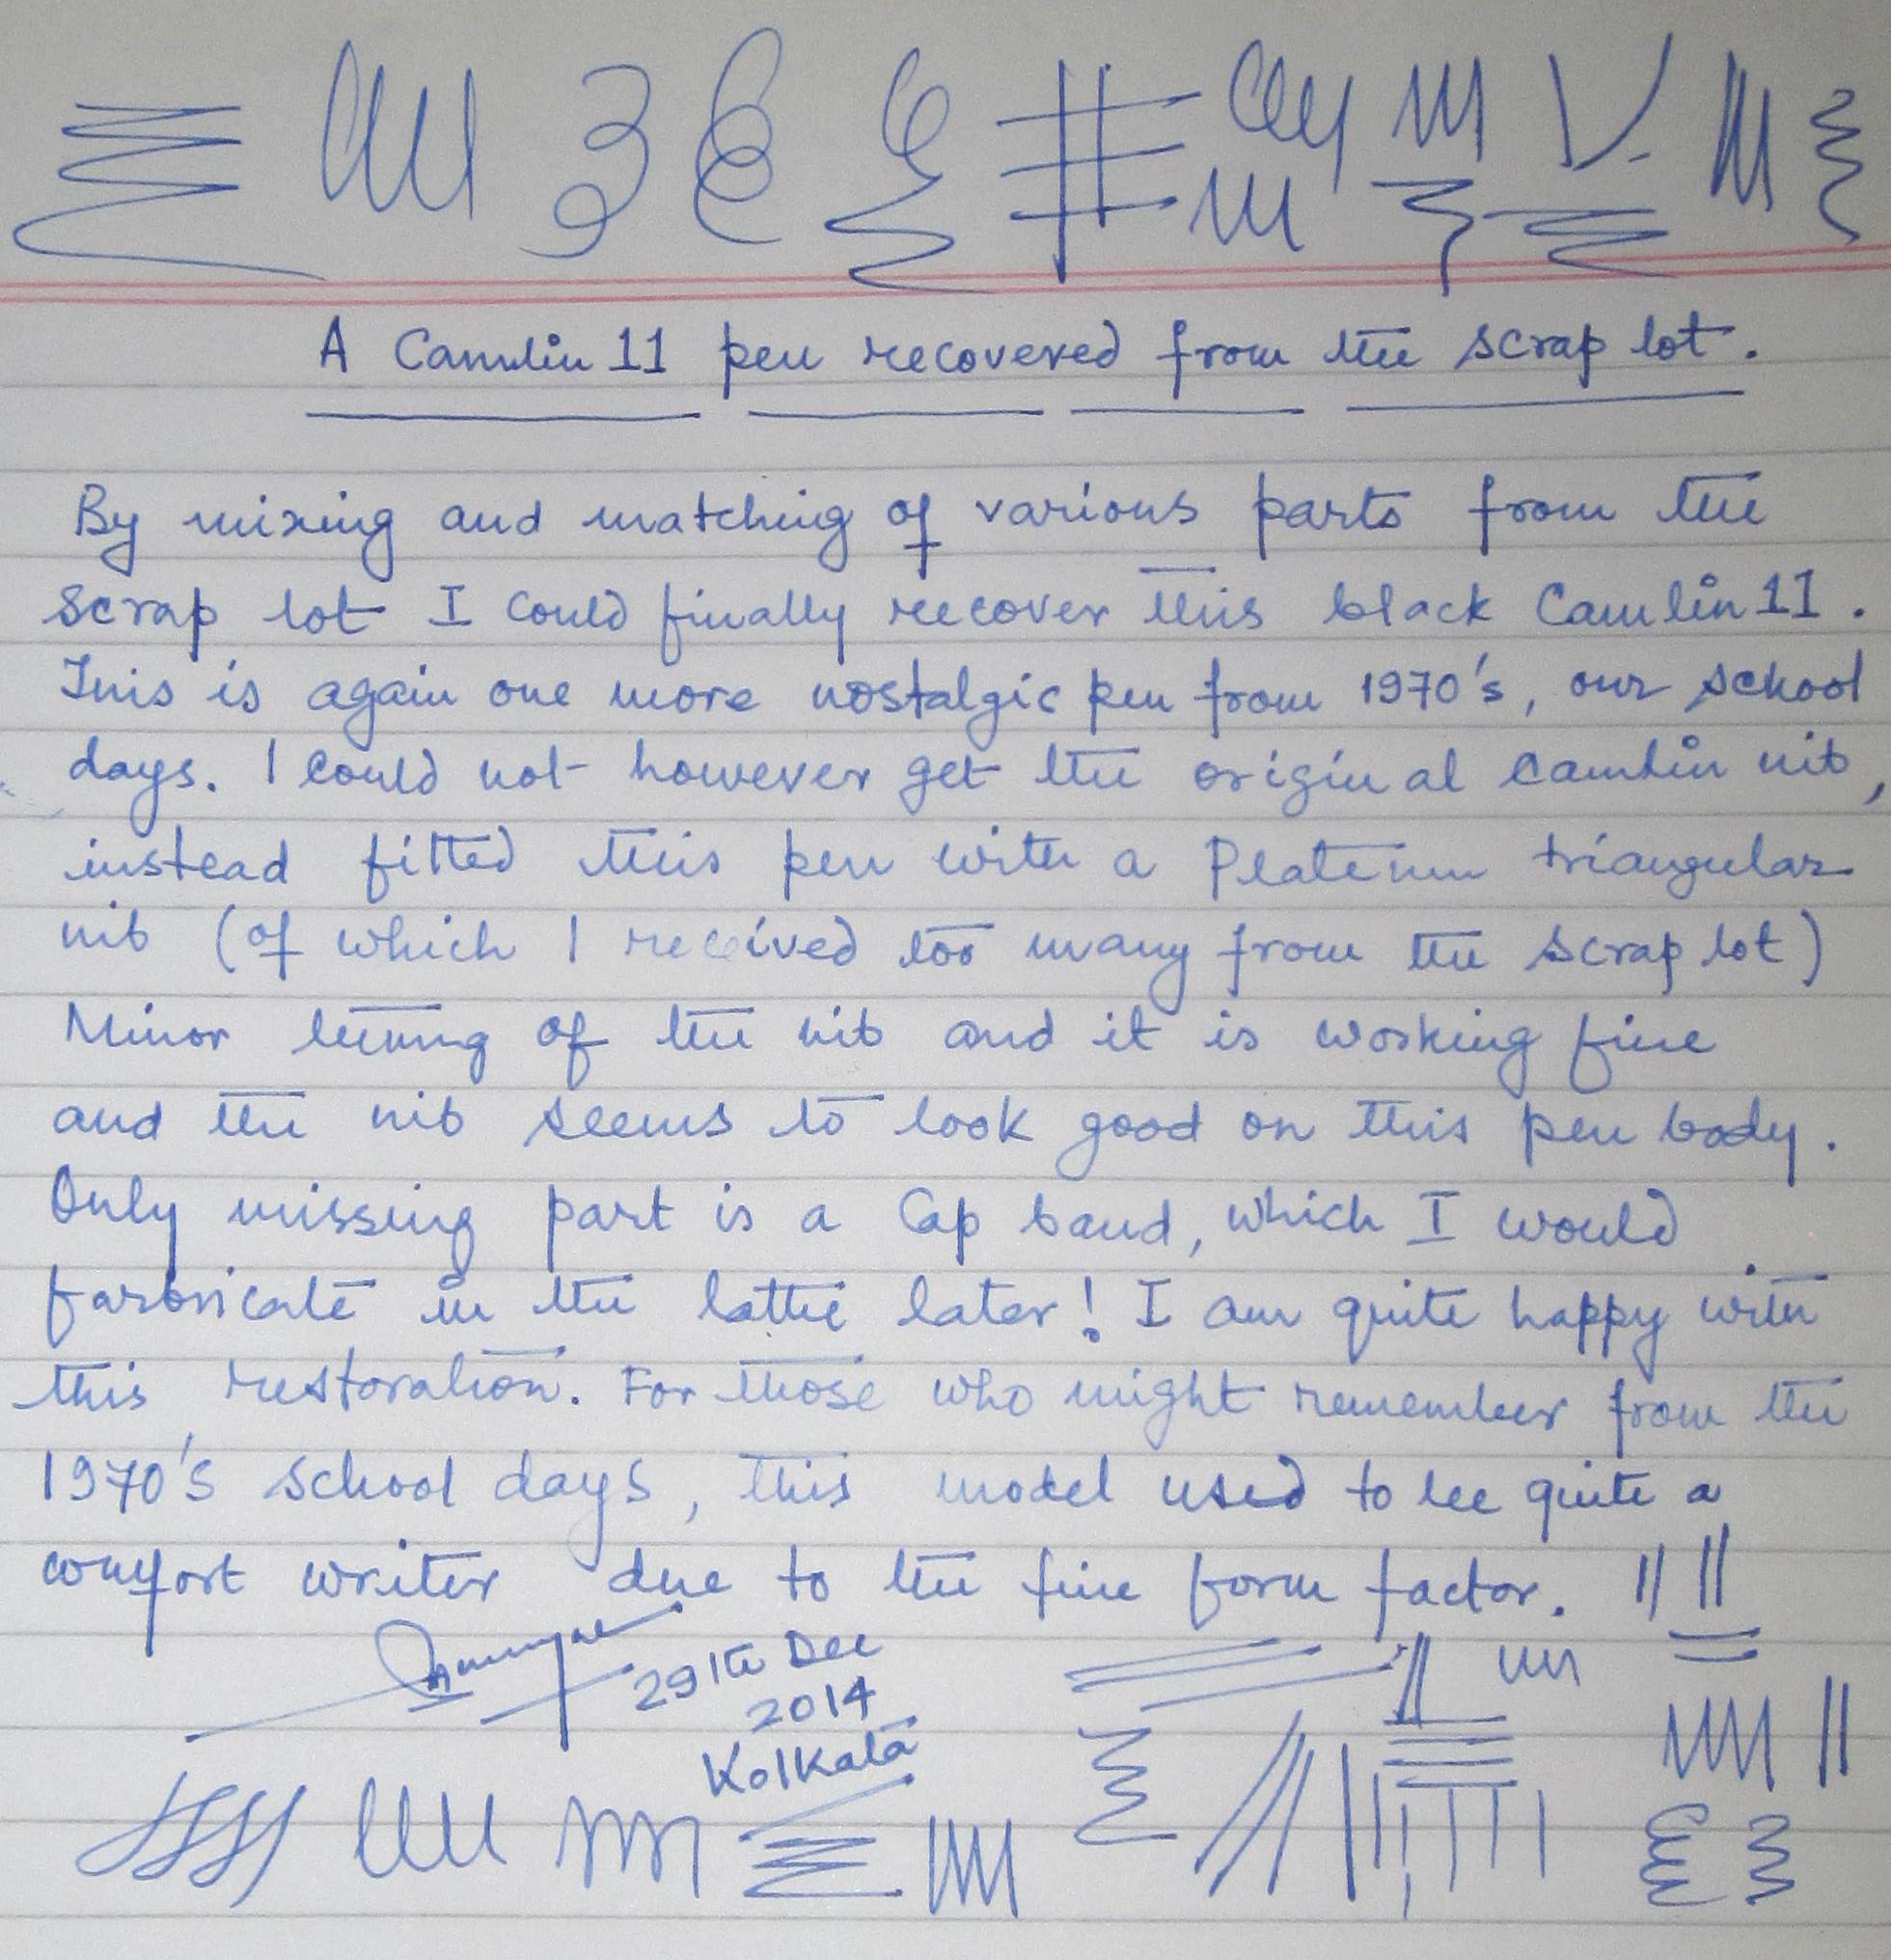 A Camlin 11 pen recovered from the scrap lot.
By mixing and matching of various parts from the
scrap lot I could finally recover this black Camlin 11.
This is again one more nostalgic pen from 1970's, our school
days. I could not however get the original camlin nib,
instead fitted this pen with a Platenum triangular
nib (of which I received too many from the scrap lot)
Minor tuning of the nib and it is working fine
and the nib seems to look good on this pen body.
Only missing part is a Cap band, which I would
farbricate in the lathe later! I am quite happy with
this restoration. For those who might remember from the
1970's school days, this model used to be quite a
comfort writer due to the fine form factor.
29th Dec
2014
Kolkata